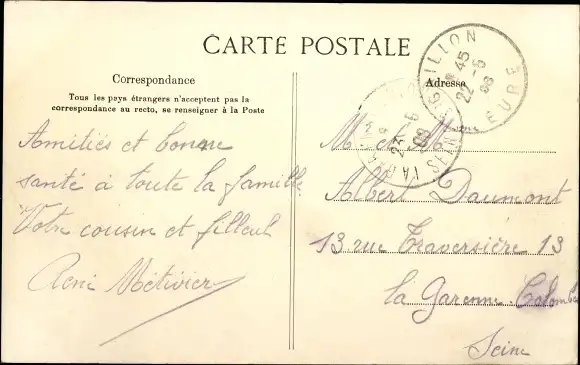 CARTE POSTALE
Correspondance
Tous les pays étrangers n'acceptent pas la
correspondance au recto, se renseigner à la Poste
Amitiés et bonne
santé à toute la famille
Votre cousin et filleul
René Métivier
Adresse
ILLON
45
22 - 5
08
EURE
LA
23 - 5
08
SEINE
Mr et Mme
Albert Daumont
13 rue Traversière 13
la Garenne Colombes
Seine